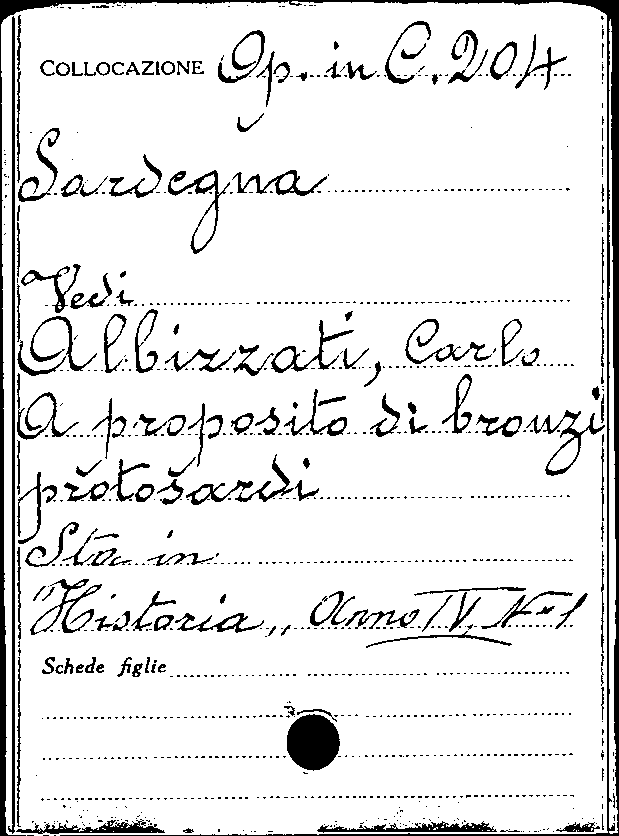 COLLOCAZIONE Op. in C. 204
Sardegna
Vedi
Albizzati, Carlo
A proposito di bronzi
protosardi
Sta in
"Historia,, Anno IV, N-1
Schede figlie